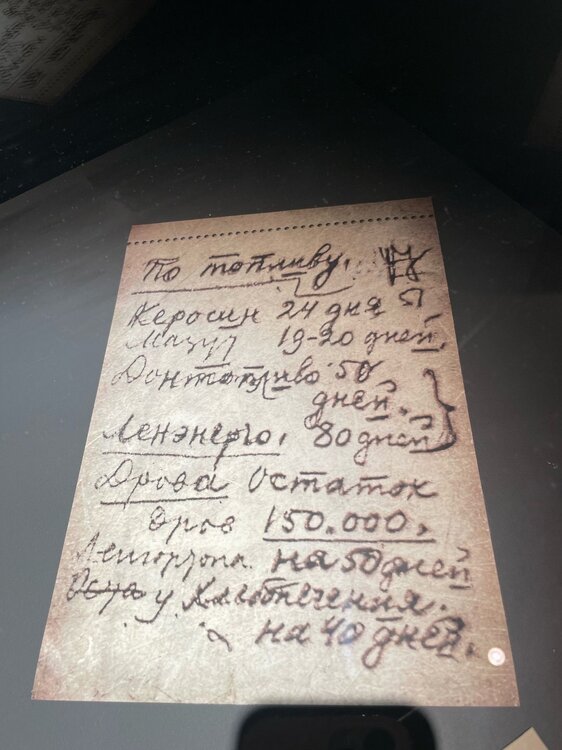 По топливу.
Керосин 24 дня
Мазут 19-20 дней.
Донтопливо 50
дней.
Ленэнерго. 80 дней
Дрова Остаток
дров 150.000.
на 50 дней
у Хлебопечения.
на 40 дней.